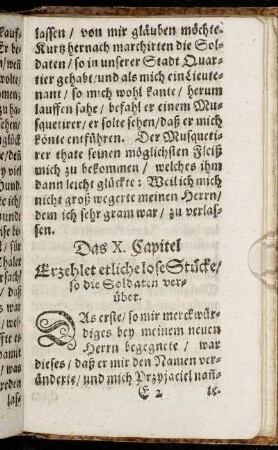 lassen / von mir gläuben möchte.
Kurtz hernach marchirten die Sol-
daten / so in unserer Stadt Quar-
tier gehabt / und als mich ein Lieute-
nant / so mich wohl kante / herum
lauffen sahe / befahl er einem Mu-
squetirer / er solte sehen / daß er mich
könte entführen. Der Musqueti-
rer thate seinen möglichsten Fleiß
mich zu bekommen / welches ihm
dann leicht glückte: Weil ich mich
nicht groß wegerte meinen Herrn /
dem ich sehr gram war / zu verlas-
sen.
Das X. Capitel
Erzehlet etliche lose Stücke /
so die Soldaten ver-
über.
DAs erste / so mir merckwür-
diges bey meinem neuen
Herrn begegnete / war
dieses / daß er mir den Namen ver-
änderte / und mich Przyjaciel nañ-
E 2 te.